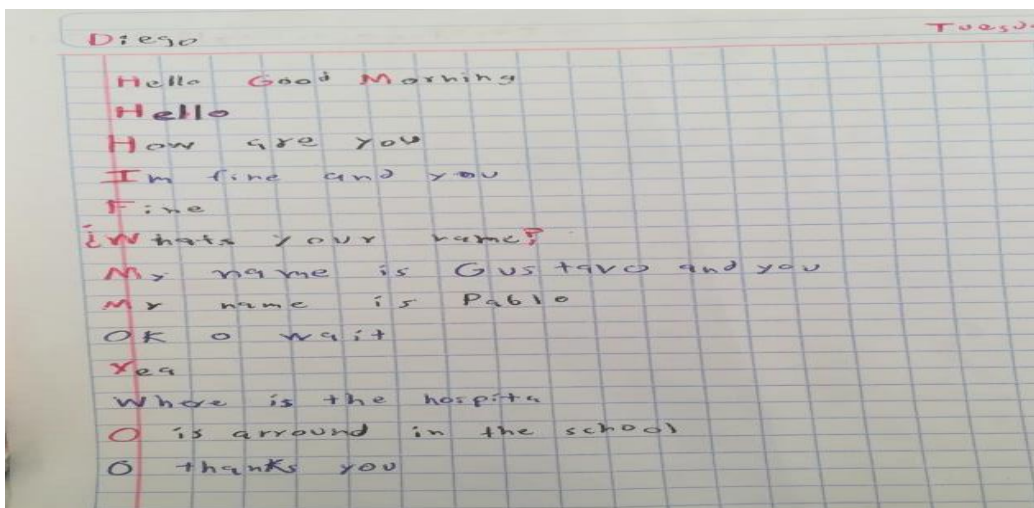 Diego
Hello Good Morning
Hello
How are you
Im fine and you
Fine
¿Whats your name?
My name is Gustavo and you
My name is Pablo
OK o wait
Yea
Where is the hospita
O is arround in the school
O thanks you